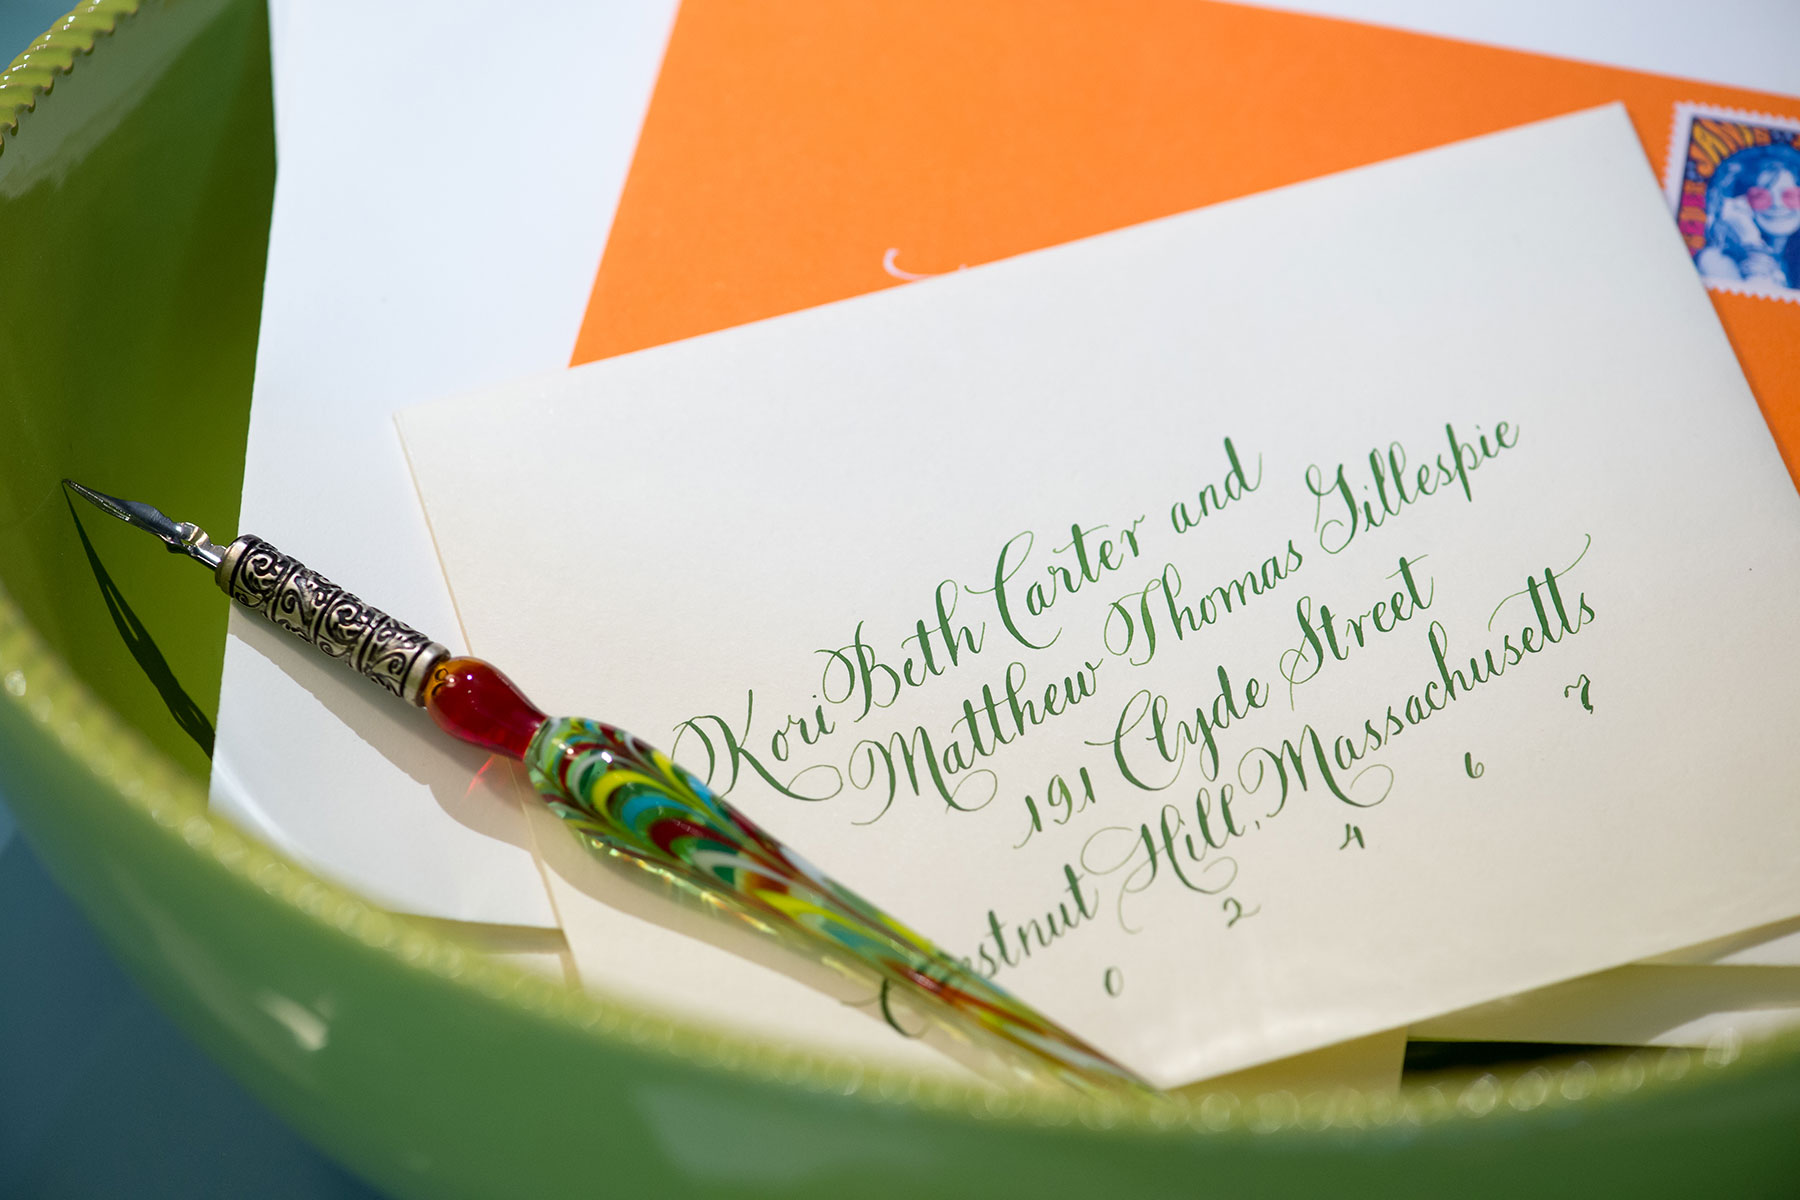 JANIS
Kori Beth Carter and
Matthew Thomas Gillespie
191 Clyde Street
Hill, Massachusetts
0 2 4 6 7